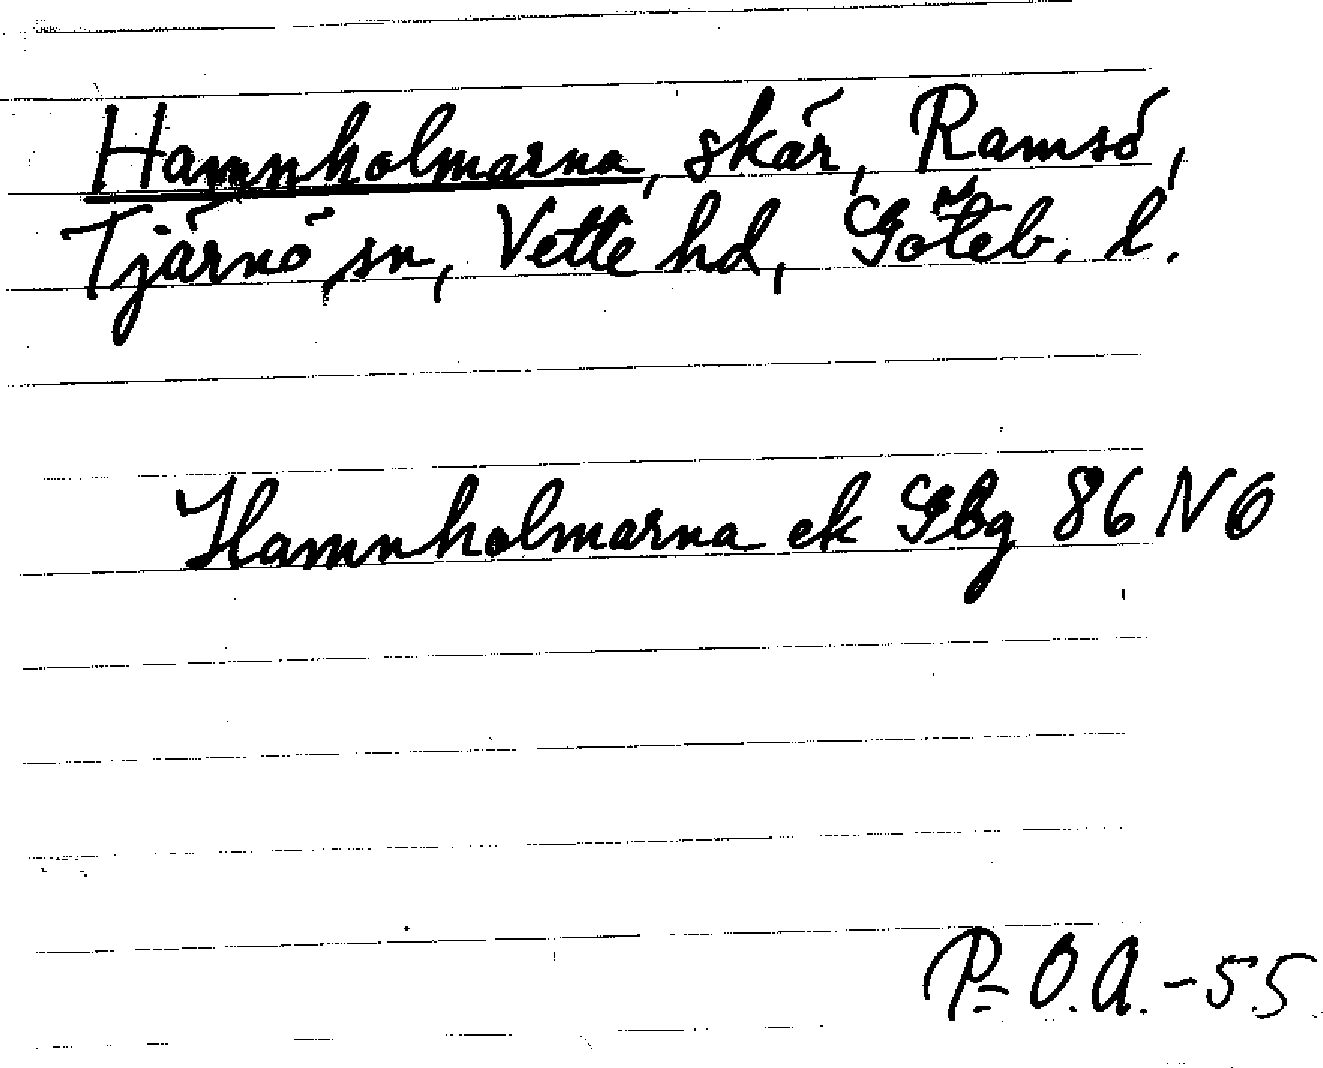 Hamnholmarna, skär, Ramsö,
Tjärnö sn, Vette hd, Göteb. l.
Hamnholmarna ek Gbg 86 NO
P-O.A.-55